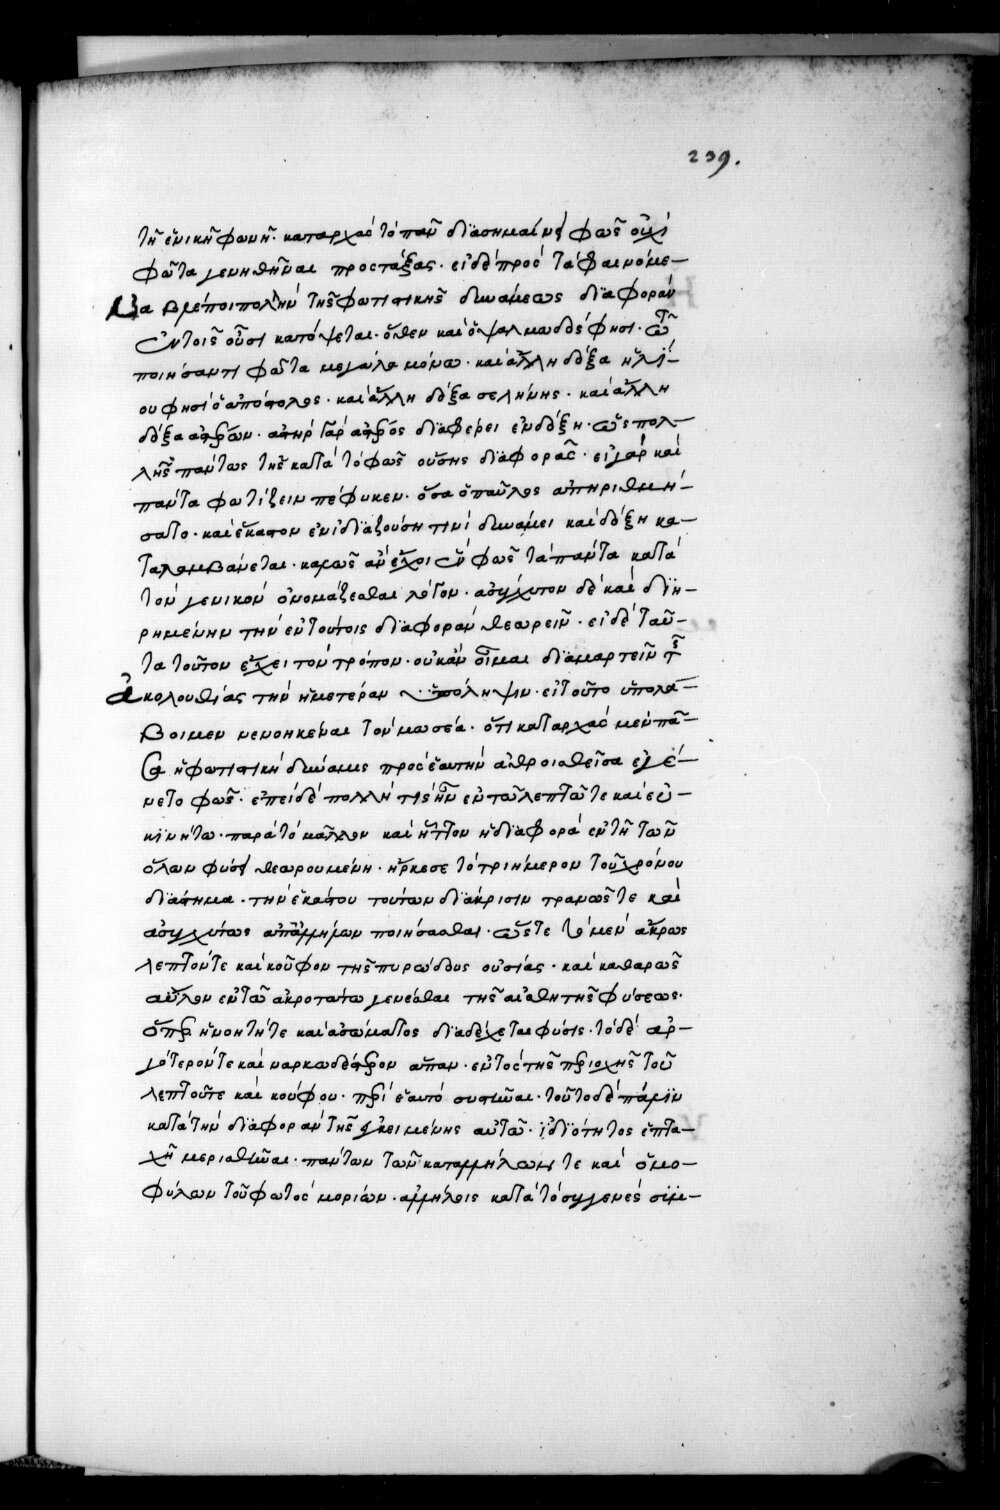 239.
τῆ ἑνικῆ φωνῆ· καταρχὰς τὸ πᾶν διασημαίνει φῶς οὐχὶ
φῶτα γενηθῆναι προστάξας· εἰ δὲ πρὸς τὰ φαινόμε-
να βλέποι πολλὴν τῆς φωτιστικῆς δυνάμεως διαφορὰν
ἐν τοῖς οὖσι κατόψεται· ὅθεν καὶ ὁ ψαλμωδός φησι· τῶ
ποιήσαντι φῶτα μεγάλα μόνω· καὶ ἄλλη δόξα ἡλί-
ου φησὶ ὁ ἀπόστολος· καὶ ἄλλη δόξα σελήνης· καὶ ἄλλη
δόξα ἀστέρων· ἀστὴρ γὰρ ἀστέρος διαφέρει ἐν δόξη· ὡς πολ-
λῆς πάντως τῆς κατὰ τὸ φῶς οὔσης διαφορᾶς· εἰ γὰρ καὶ
πάντα φωτίζειν πέφυκεν· ὅσα ὁ παῦλος ἀπηριθμή-
σατο· καὶ ἕκαστον ἐν ἰδιαζούση τινὶ δυνάμει καὶ δόξη κα-
ταλαμβάνεται· καλῶς ἂν ἔχοι ἓν φῶς τὰ πάντα κατὰ
τὸν γενικὸν ὀνομάζεσθαι λόγον· ἀσύγχυτον δὲ καὶ διη-
ρημένην τὴν ἐν τούτοις διαφορὰν θεωρεῖν· εἰ δὲ ταῦ-
τα τοῦτον ἔχει τὸν τρόπον· οὐκ ἂν οἶμαι διαμαρτεῖν τῆς
ἀκολουθίας τὴν ἡμετέραν ὑπόληψιν· εἰ τοῦτο ὑπολά-
βοιμεν νενοηκέναι τὸν μωσέα· ὅτι καταρχὰς μὲν πᾶ-
σα ἡ φωτιστικὴ δύναμις πρὸς ἑαυτὴν ἀθροισθεῖσα ἐγέ-
νετο φῶς· ἐπεὶ δὲ πολλή τις ἦν ἐν τῶ λεπτῶ τε καὶ εὐ-
κινήτω· παρὰ τὸ μᾶλλον καὶ ἧττον ἡ διαφορὰ ἐν τῆ τῶν
ὅλων φύσει θεωρουμένη· ἤρκεσε τὸ τριήμερον τοῦ χρόνου
διάστημα· τὴν ἑκάστου τούτων διάκρισιν τρανῶς τε καὶ
ἀσυγχύτως ἀπαλλήλων ποιήσασθαι· ὥστε τὸ μὲν ἄκρως
λεπτόν τε καὶ κοῦφον τῆς πυρώδους οὐσίας· καὶ καθαρῶς
ἄϋλον ἐν τῶ ἀκροτάτω γενέσθαι τῆς αἰσθητῆς φύσεως·
ὅπερ ἡ νοητή τε καὶ ἀσώματος διαδέχεται φύσις· τὸ δὲ ἀρ-
γότερόν τε καὶ ναρκωδέστερον ἅπαν· ἐντὸς τῆς περιοχῆς τοῦ
λεπτοῦ τε καὶ κούφου· περὶ ἑαυτὸ συστῆναι· τοῦτο δὲ πάλιν
κατὰ τὴν διαφορὰν τῆς ἐγκειμένης αὐτῶ ἰδιότητος ἑπτα-
χῆ μερισθῆναι· πάντων τῶν καταλλήλων τε καὶ ὁμο-
φύλων τοῦ φωτὸς μορίων· ἀλλήλοις κατὰ τὸ συγγενὲς συμ-